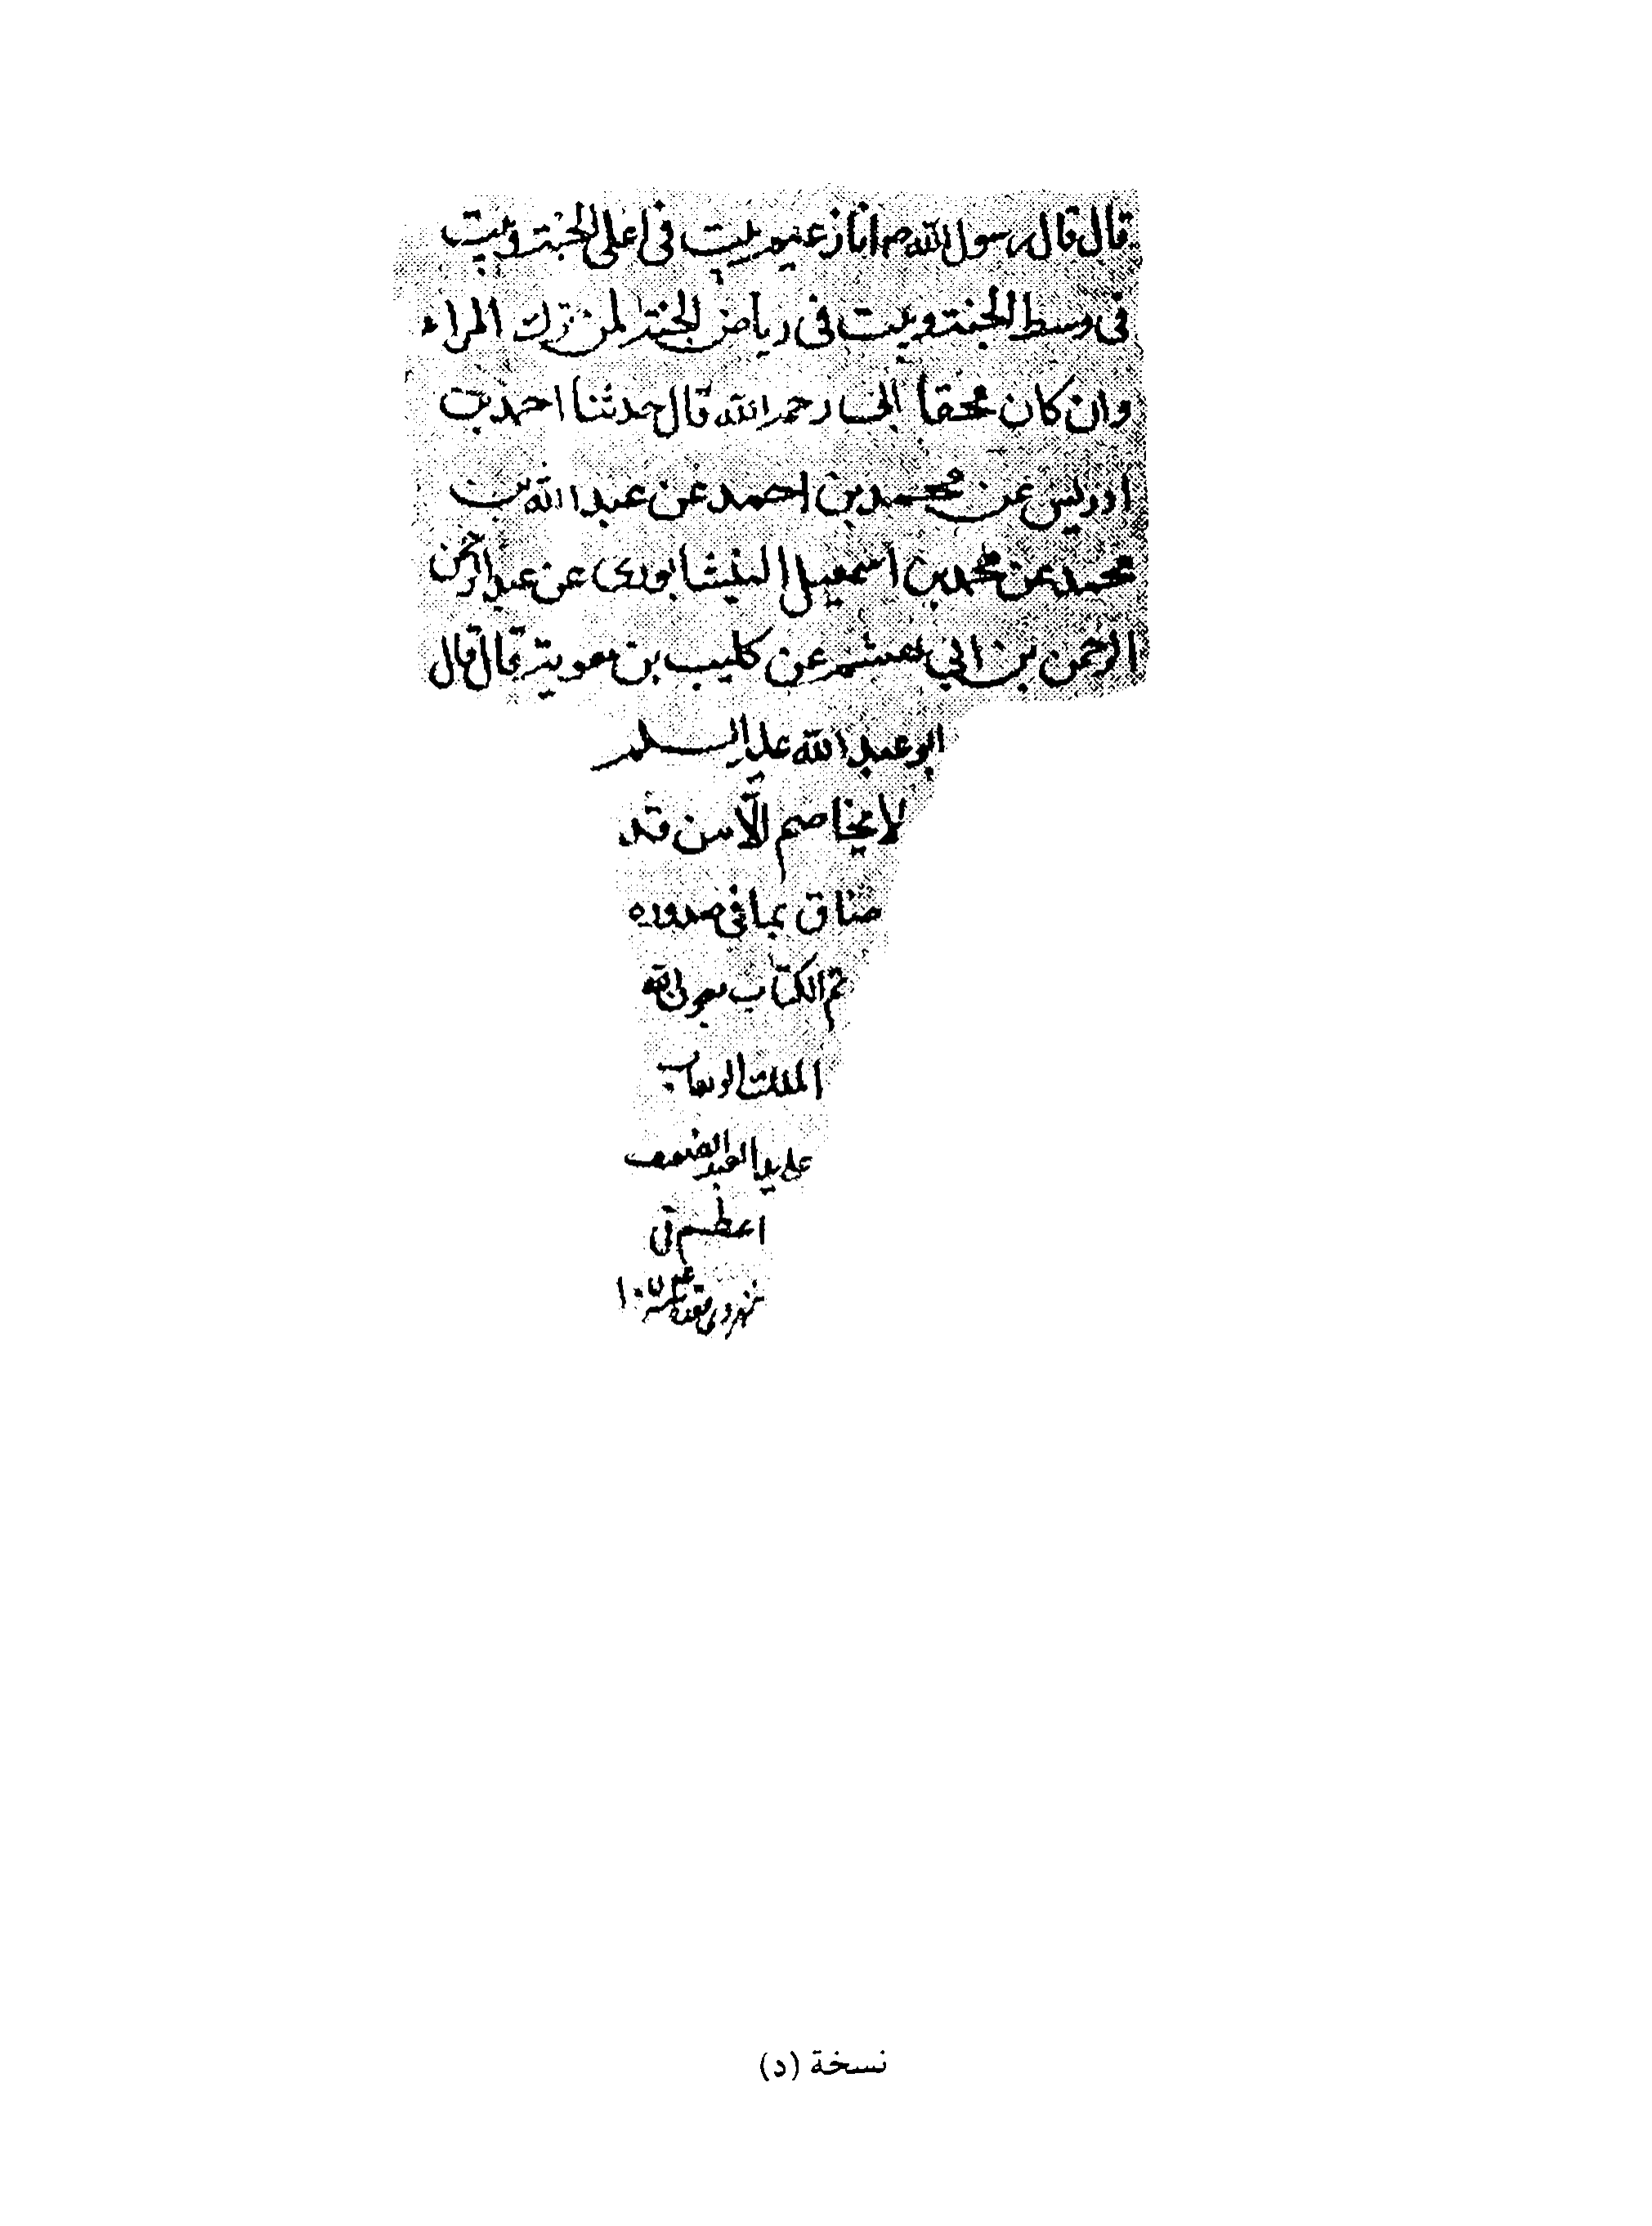 قال قال رسول الله ص انا زعيم بيت فى اعلى الجنة وبيت
فى وسط الجنة وبيت فى رياض الجنة لمن ترك المراء
وان كان محقا ابى رحمه الله قال حدثنا احمد بن
ادريس عن محمد بن احمد عن عبد الله بن
محمد عن محمد بن اسمعيل النيشابورى عن عبد الرحمن
الرحمن بن ابي هاشم عن كليب بن معوية قال قال
ابو عبد الله عليه السلم
لا يخاصم الّا من قد
ضاق بما فى صدوره
تم الكتاب بعون الله
الملك الوهاب
على يد العبد الضعيف
اعظم
شهر ذى قعده سنه
نسخة (د)